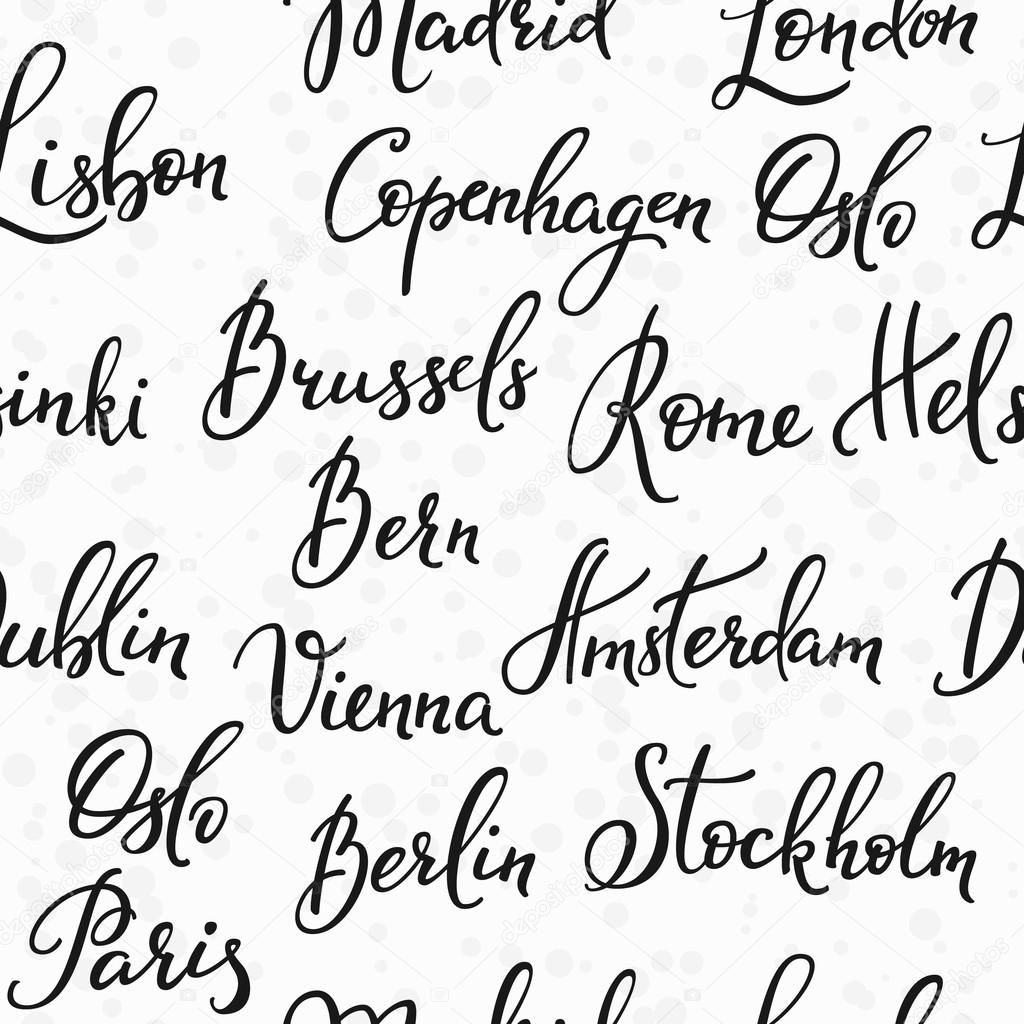 Madrid London
Lisbon Copenhagen Oslo L
sinki Brussels Rome Hels
Bern
ublin Vienna Amsterdam D
Oslo Berlin Stockholm
Paris